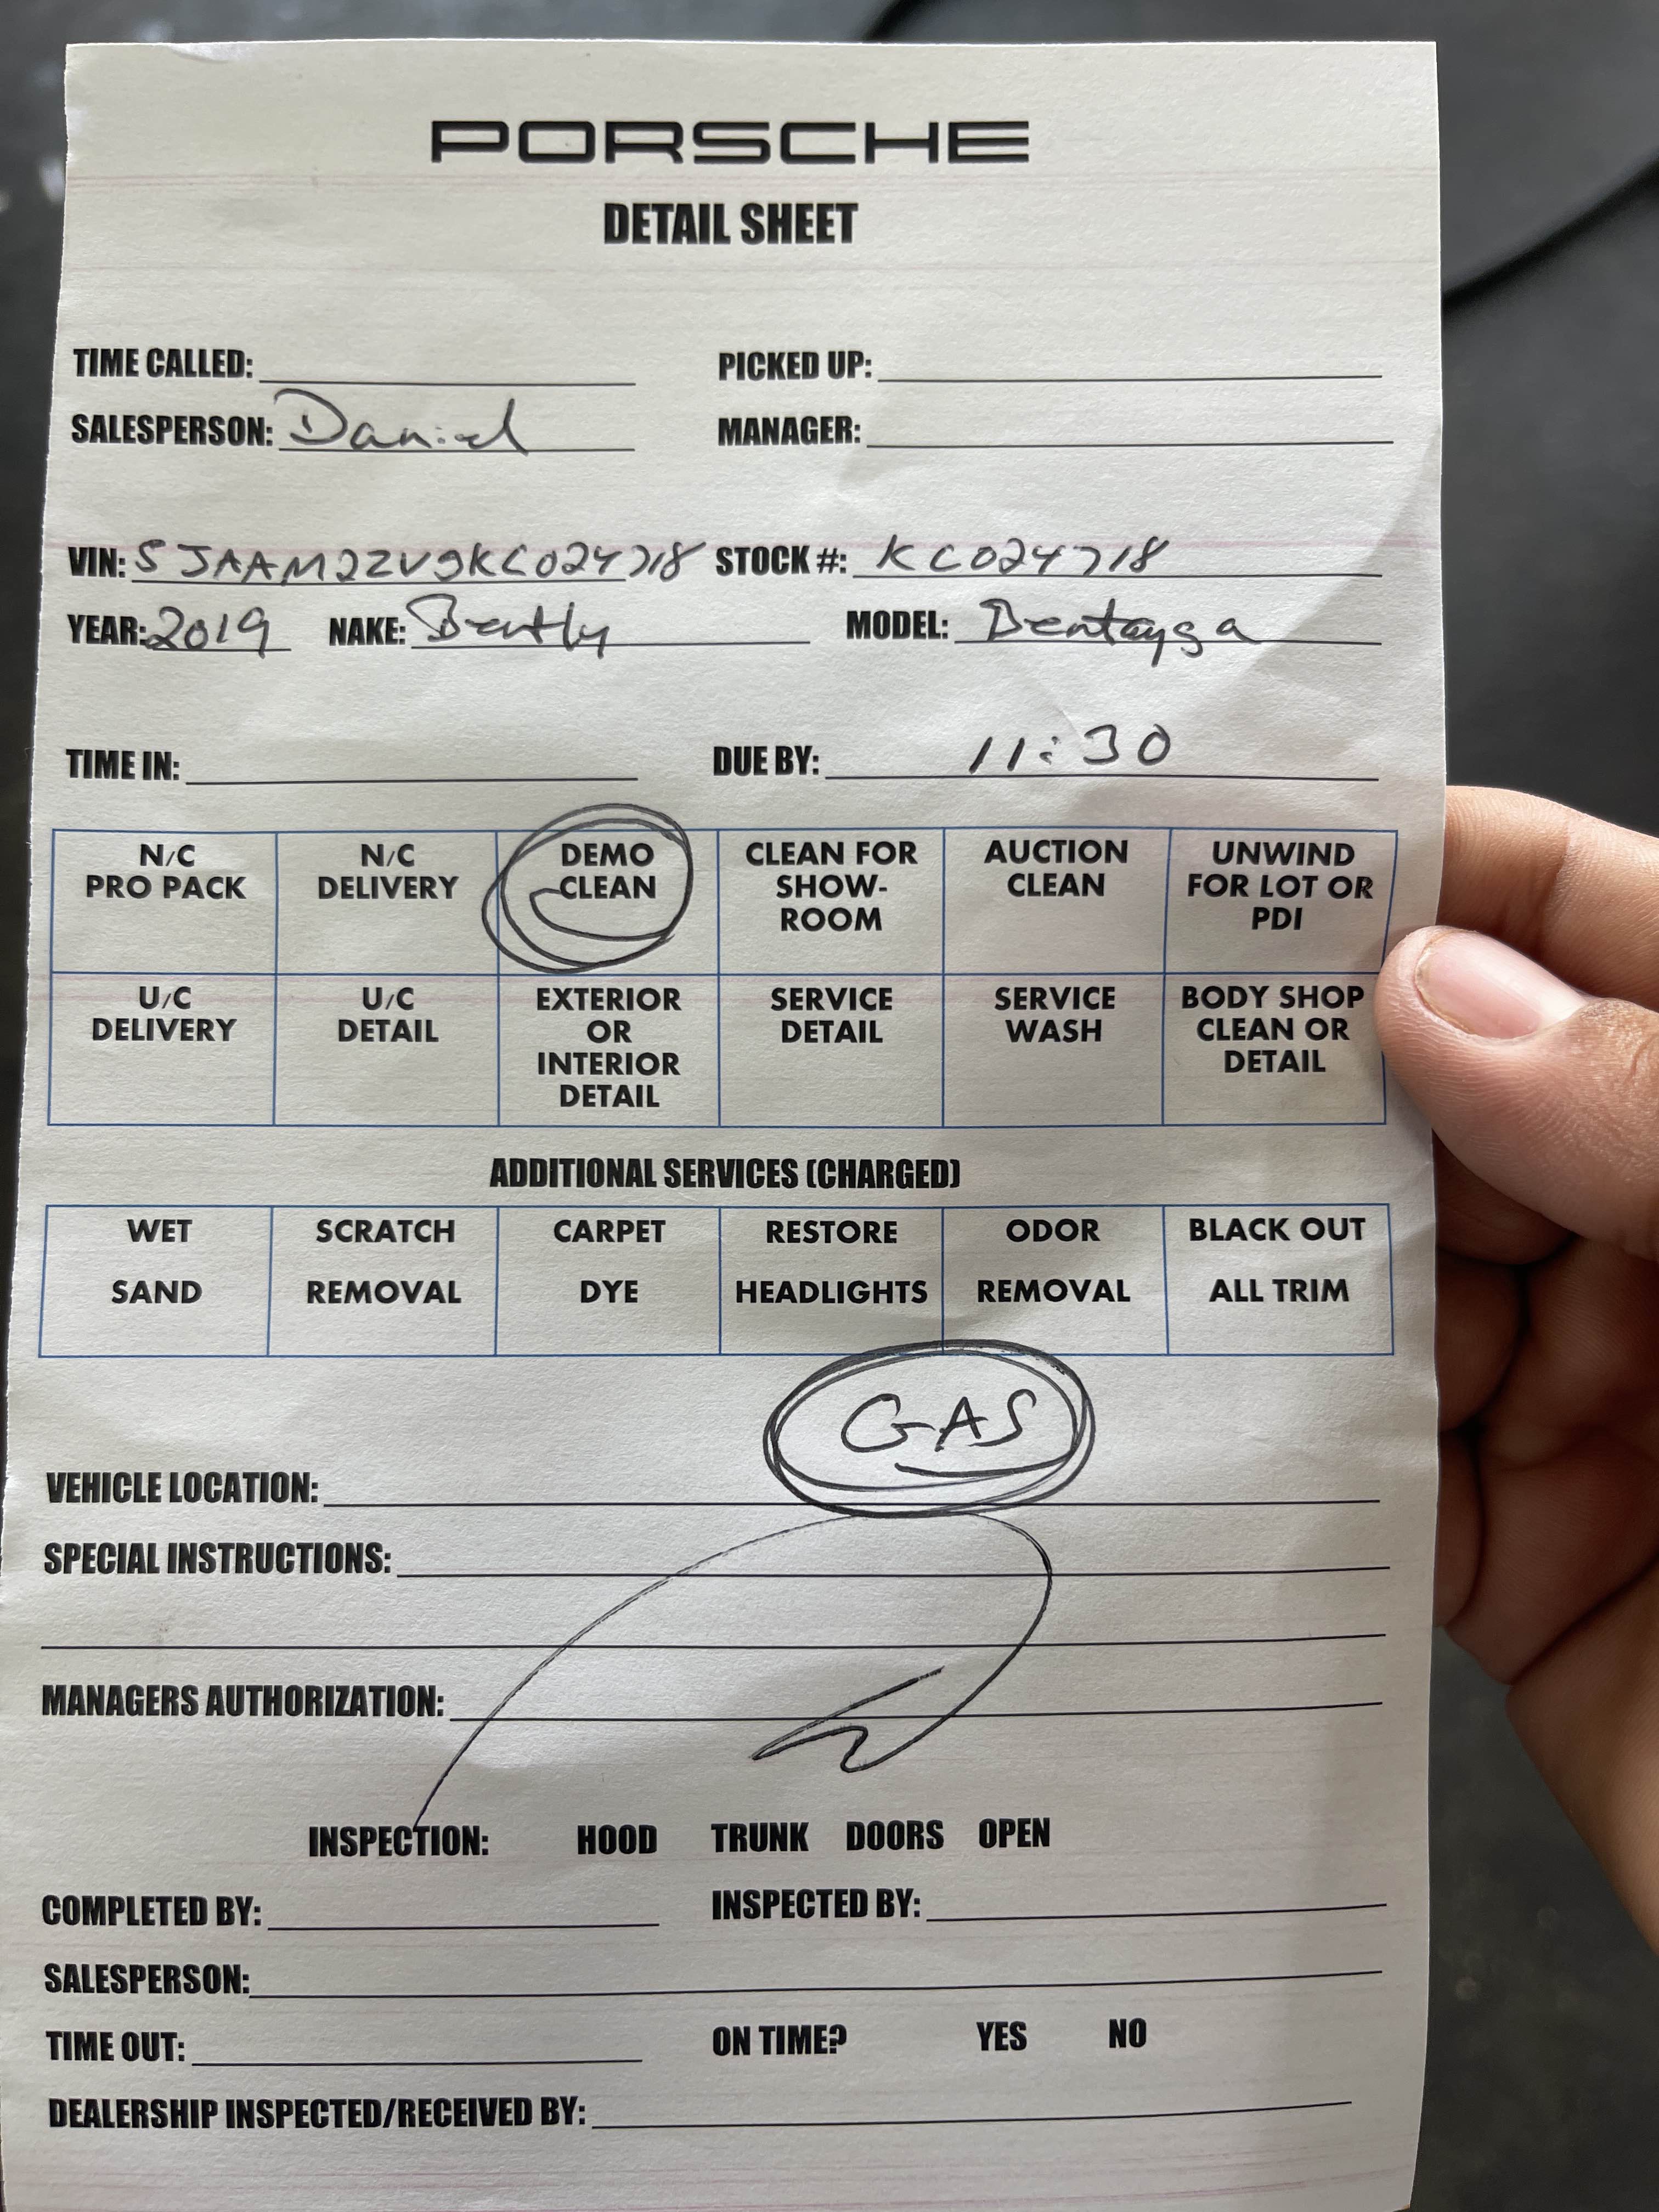 PORSCHE
DETAIL SHEET
TIME CALLED: PICKED UP:
SALESPERSON: Daniel MANAGER:
VIN: SJAAM2ZV9KC024718 STOCK #: KC024718
YEAR: 2019 NAKE: Bently MODEL: Bentayga
TIME IN: DUE BY: 11:30
N/C PRO PACK
N/C DELIVERY
DEMO CLEAN
CLEAN FOR SHOW-ROOM
AUCTION CLEAN
UNWIND FOR LOT OR PDI
U/C DELIVERY
U/C DETAIL
EXTERIOR OR INTERIOR DETAIL
SERVICE DETAIL
SERVICE WASH
BODY SHOP CLEAN OR DETAIL
ADDITIONAL SERVICES (CHARGED)
WET SAND
SCRATCH REMOVAL
CARPET DYE
RESTORE HEADLIGHTS
ODOR REMOVAL
BLACK OUT ALL TRIM
GAS
VEHICLE LOCATION:
SPECIAL INSTRUCTIONS:
MANAGERS AUTHORIZATION:
INSPECTION: HOOD TRUNK DOORS OPEN
COMPLETED BY: INSPECTED BY:
SALESPERSON:
TIME OUT: ON TIME? YES NO
DEALERSHIP INSPECTED/RECEIVED BY: